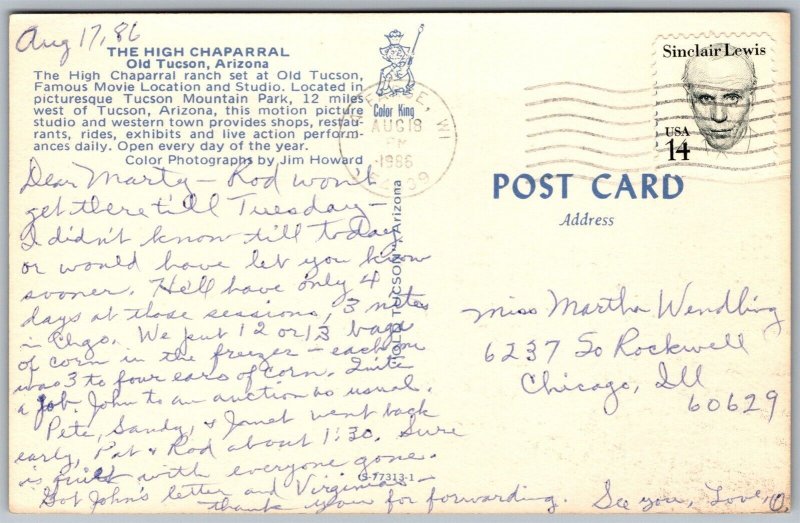 Aug 17, 86
THE HIGH CHAPARRAL
Old Tucson, Arizona
The High Chaparral ranch set at Old Tucson,
Famous Movie Location and Studio. Located in
picturesque Tucson Mountain Park, 12 miles
west of Tucson, Arizona, this motion picture
studio and western town provides shops, restau-
rants, rides, exhibits and live action perform-
ances daily. Open every day of the year.
Color Photographs by Jim Howard
Color King
WI
AUG 18
PM
1986
Sinclair Lewis
USA
14
POST CARD
Address
Dear Marty – Rod won't
get there till Tuesday –
I didn't know till today
or would have let you know
sooner. He'll have only 4
days at those sessions, 3 nites
in Chgo. We put 12 or 13 bags
of corn in the freezer – each one
was 3 to four ears of corn. Quite
a job. John to an auction as usual.
Pete, Sandy, & Janet went back
early, Pat & Rod about 1:30. Sure
is quiet with everyone gone.
Got John's letter and Virginia's –
thank you for forwarding. See you, Love,
TUCSON, Arizona
77313-1
Miss Martha Wendling
6237 So Rockwell
Chicago, Ill
60629